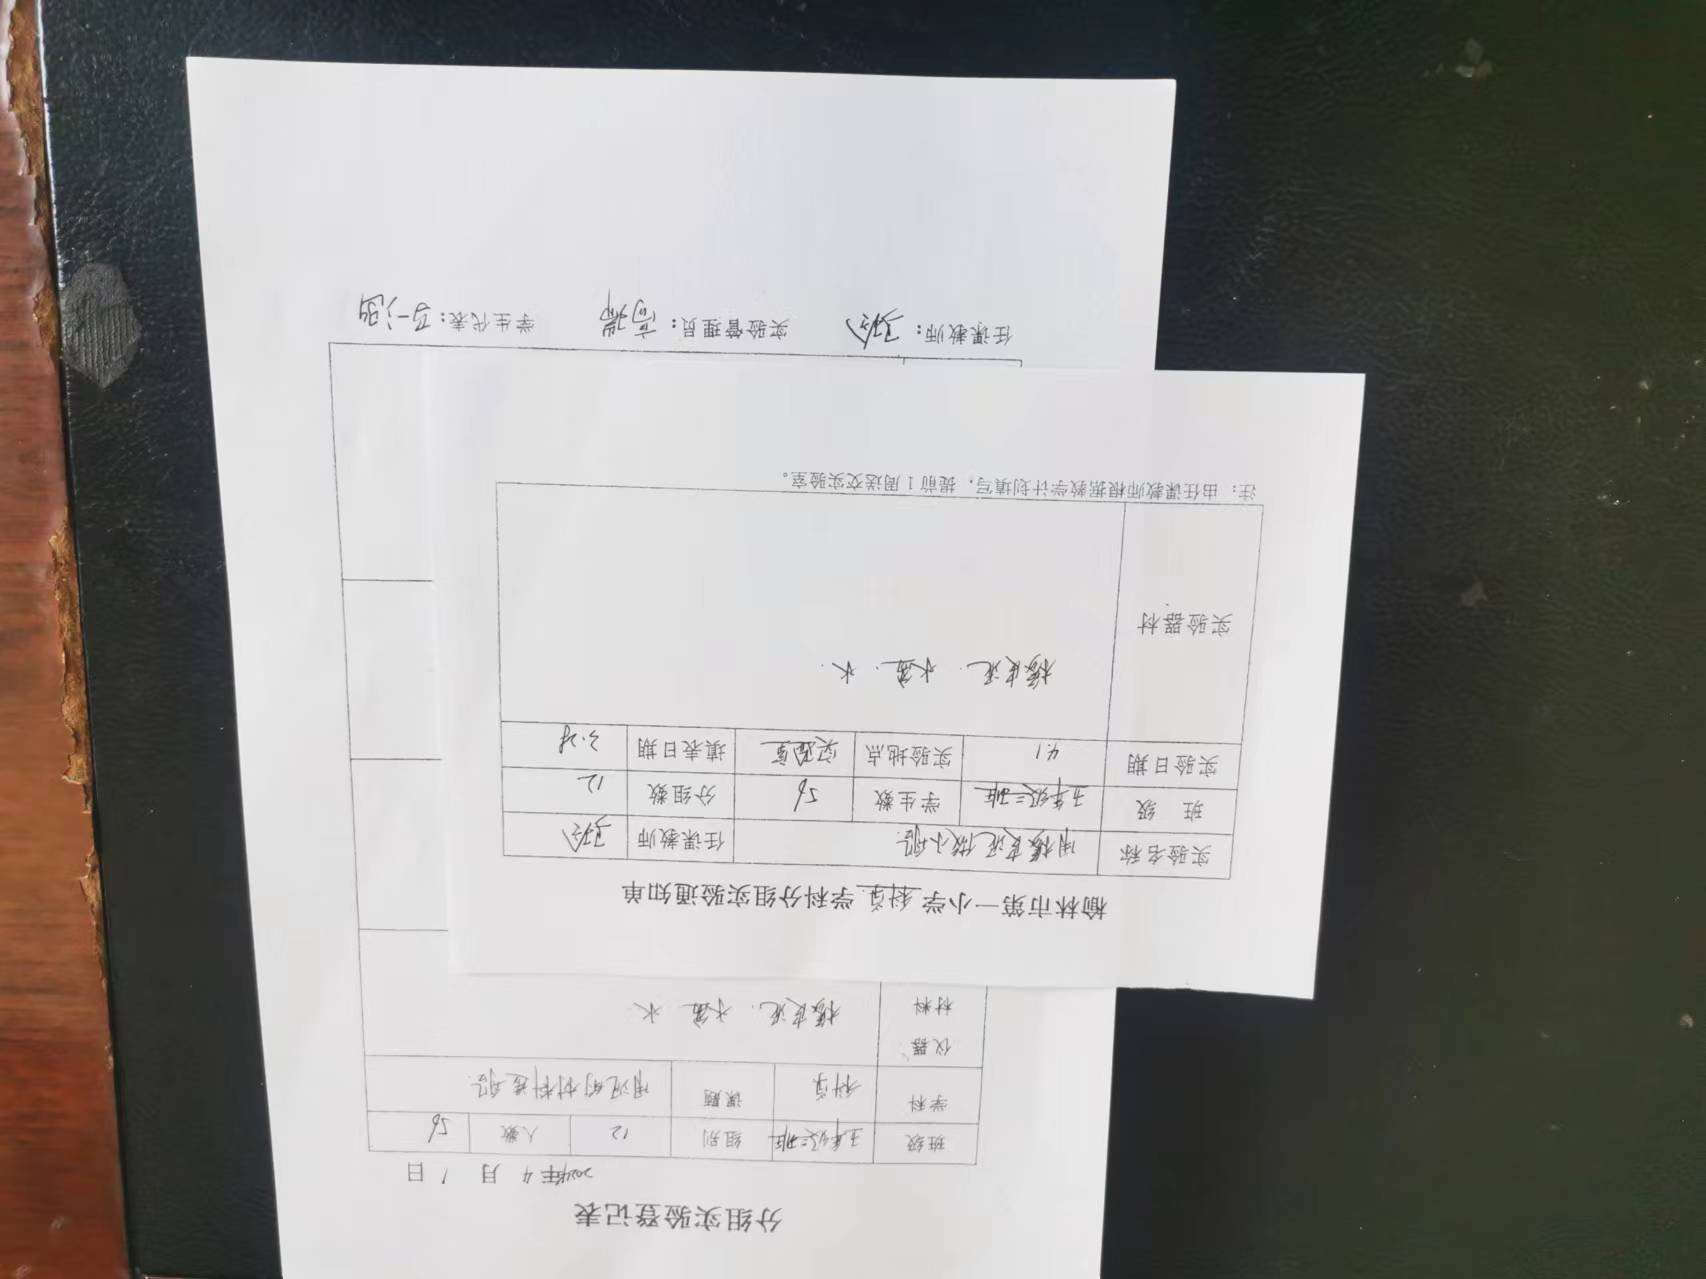 榆林市第一小学 科学 学科分组实验通知单
实验名称 用橡皮泥做小船 任课教师
班 级 五年级二班 学生数 56 分组数 12
实验日期 4.1 实验地点 实验室 填表日期 3.28
实验器材 橡皮泥. 水盆. 水.
注：由任课教师根据教学计划填写，提前1周送交实验室。
分组实验登记表
2024年 4 月 1 日
班级 五年级二班 组别 12 人数 56
学科 科学 课题 用沉的材料造船.
仪器
材料 橡皮泥. 水盆. 水
任课教师： 实验管理员：高瑞 学生代表：马一涵